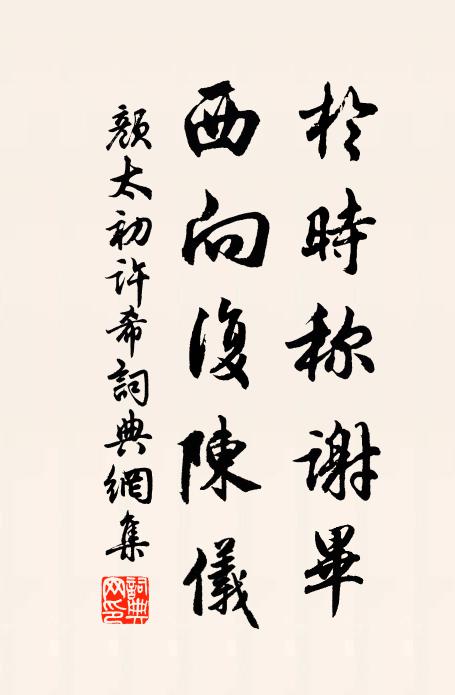 於時称謝畢
西向復陳儀
顏太初許希詞典網集
詞典网印